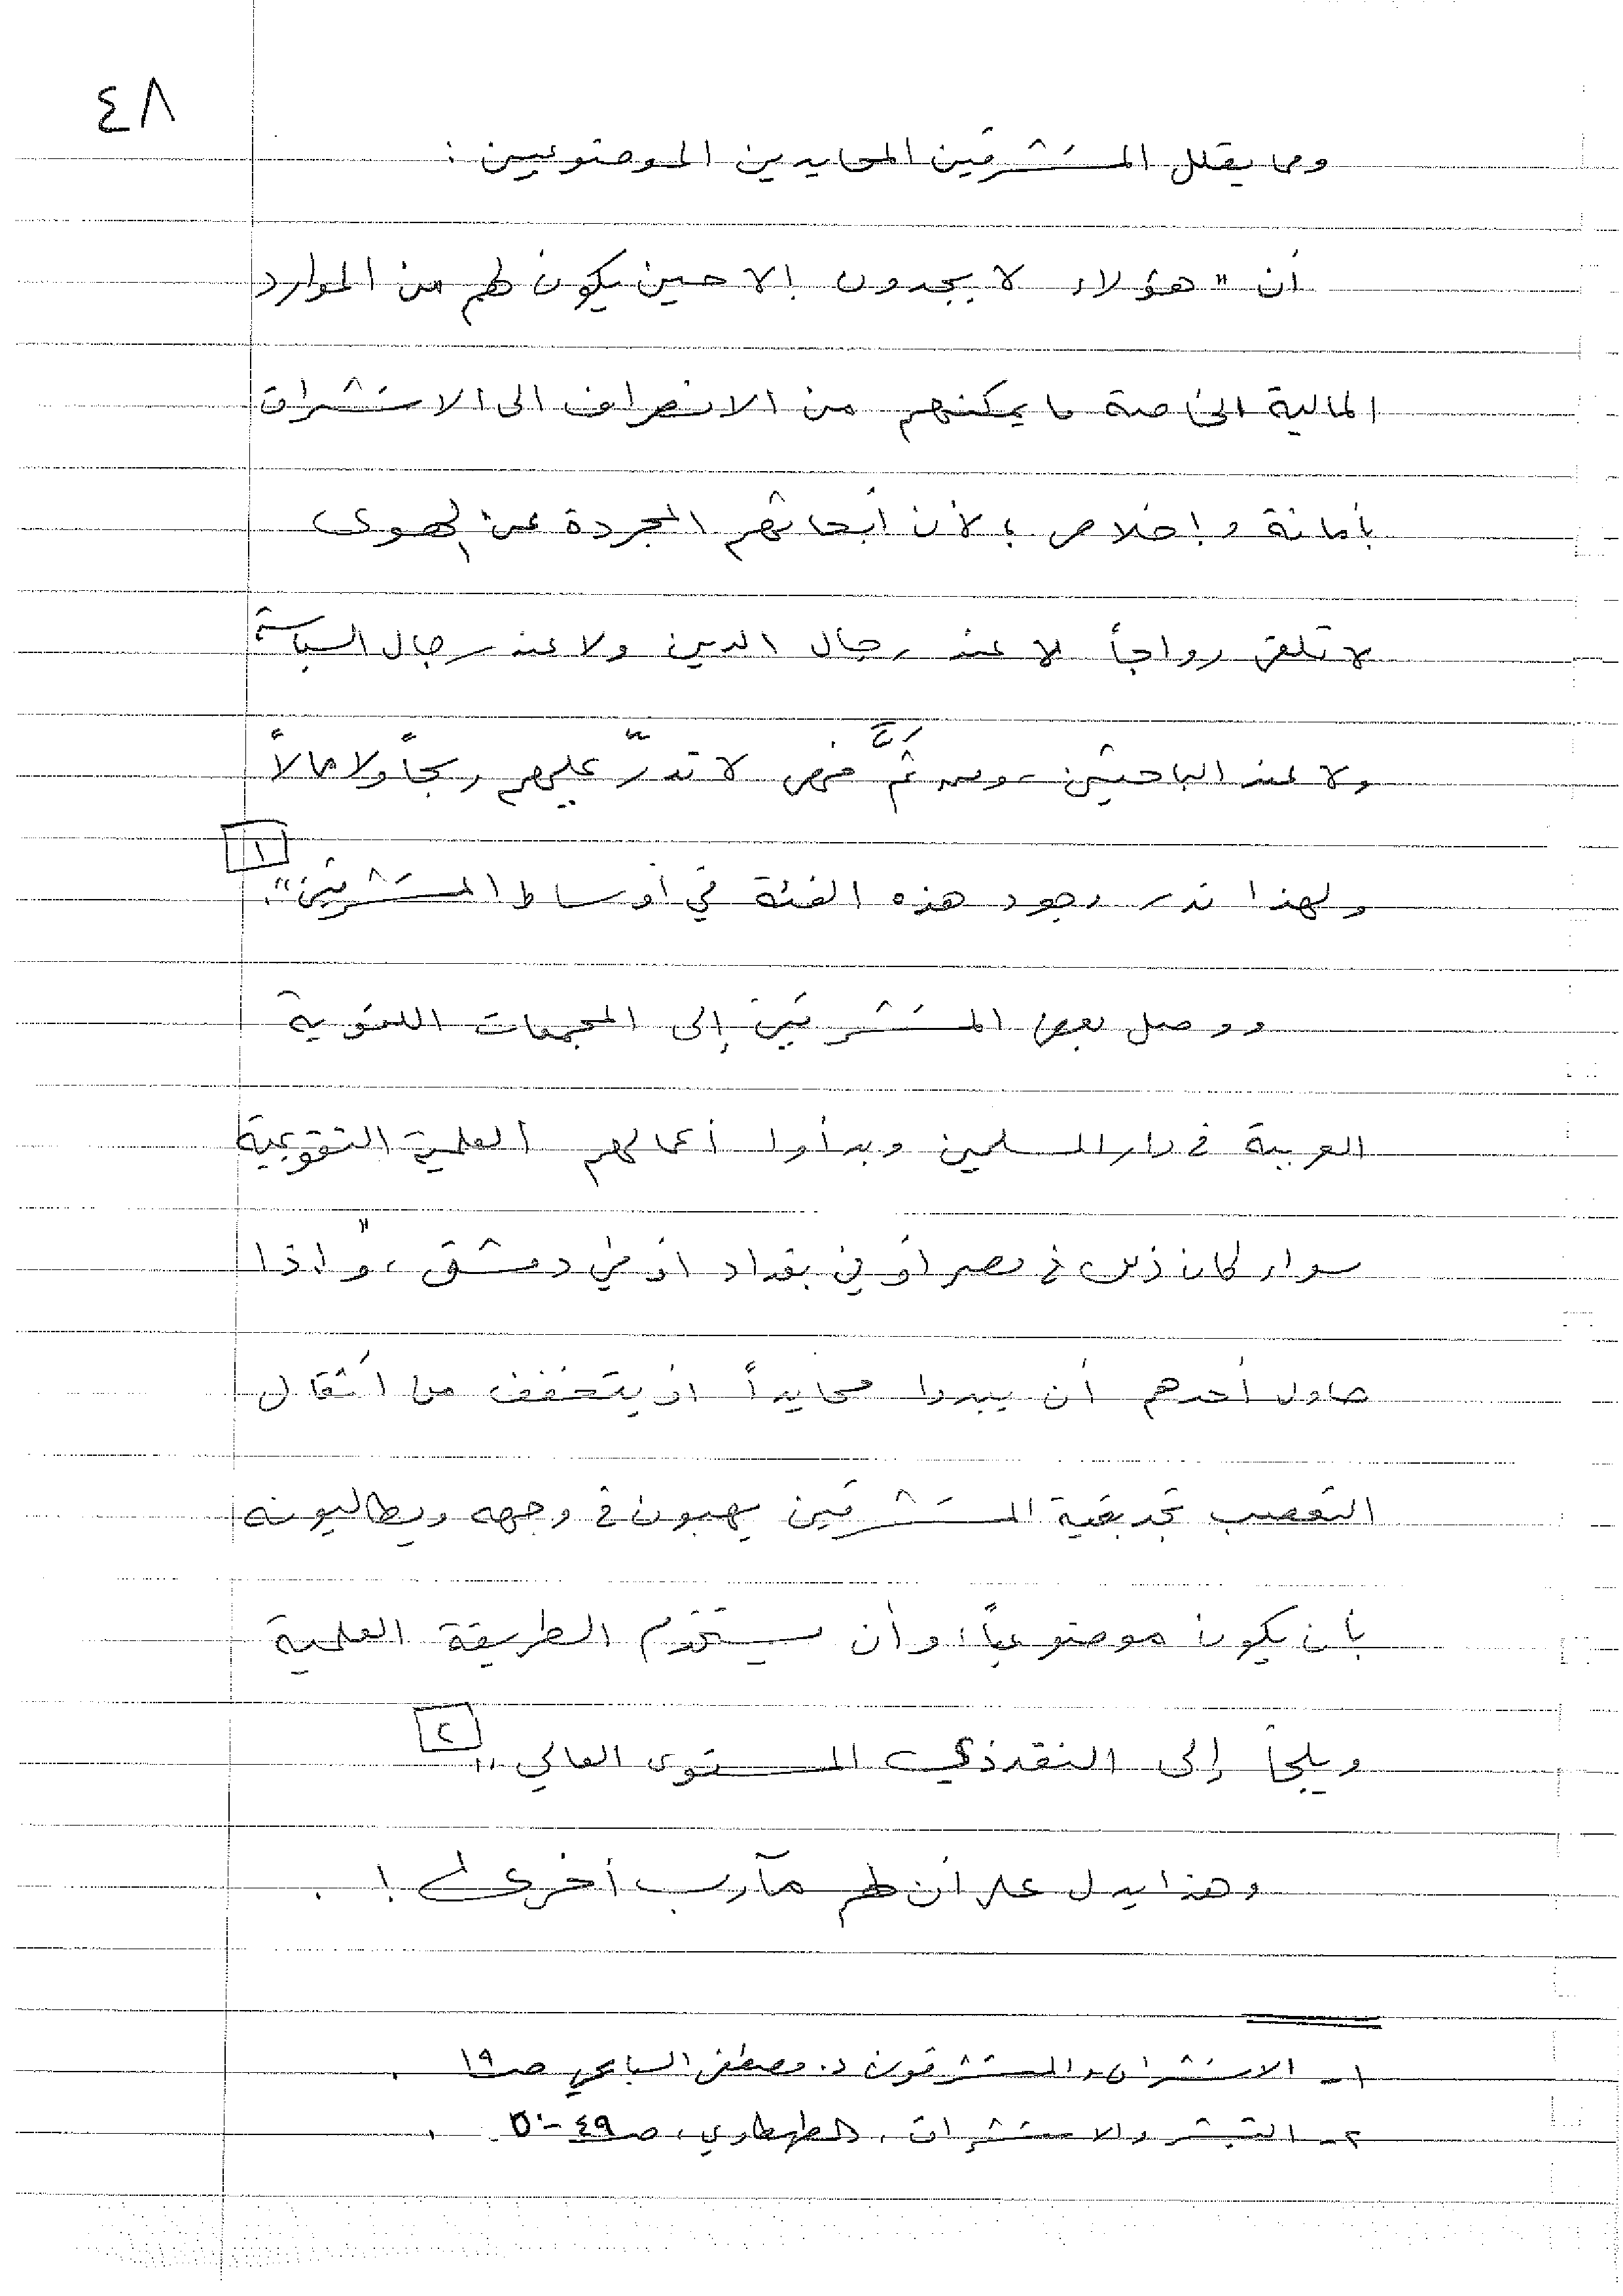 ٤٨
ومما يقلل المستشرقين المحايدين الموضوعيين :
أن " هؤلاء لا يجدون إلا حين يكون لهم من الموارد
المالية الخاصة ما يمكنهم من الانصراف الى الاستشراق
بأمانة وإخلاص ؛ لأن أبحاثهم المجردة عن الهوى
لا تلقى رواجاً لا عند رجال الدين ولا عند رجال السياسة
ولا عند الباحثين ، ومن ثَمَّ فهي لا تدرّ عليهم ربحاً ولا مالاً
ولهذا ندر وجود هذه الفئة في أوساط المستشرقين ". [١]
ووصل بعض المستشرقين إلى المجمعات اللغوية
العربية في دار المسلمين وبدأوا أعمالهم العلمية التقويمية
سواء كان ذلك في مصر أو في بغداد أو في دمشق ، " وإذا
حاول أحدهم أن يبدوا محايداً أو يتخفف من أثقال
التعصب تجد بقية المستشرقين يهبون في وجهه ويطالبونه
بأن يكون موضوعياً ، وأن يستخدم الطريقة العلمية
ويلجأ إلى النقد ذي المستوى العالي ،، [٢]
وهذا يدل على أن لهم مآرب أخرى ! .
١ـ الاستشراق والمستشرقون د. مصطفى السباعي صـ ١٩ .
٢ـ التبشير والاستشراق ، الطهطاوي ، صـ ٤٩ - ٥٠ .